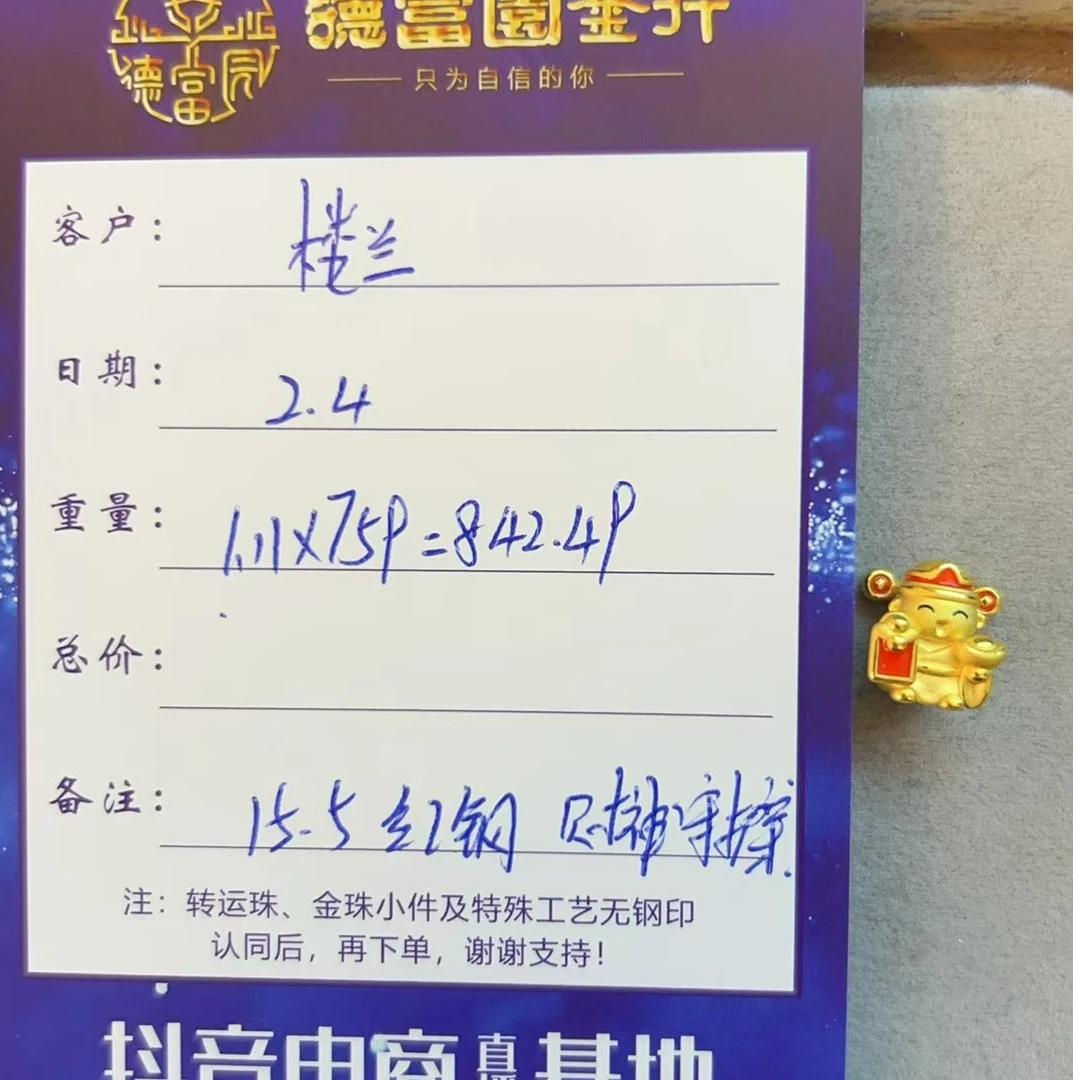 德富园
德富園金行
只为自信的你
客户：楼兰
日期：2.4
重量：1.11×759=842.49
总价：
备注：15.5 红钢 财神
注：转运珠、金珠小件及特殊工艺无钢印
认同后，再下单，谢谢支持！
抖音电商直播基地